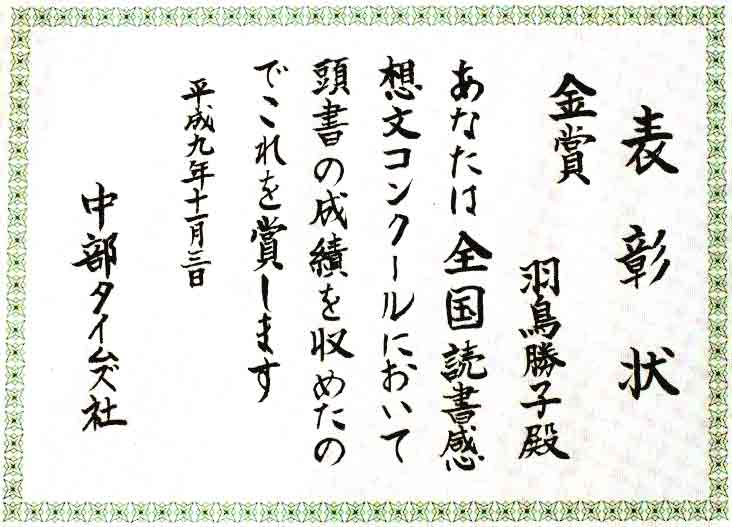 表彰状
金賞
羽鳥勝子殿
あなたは全国読書感
想文コンクールにおいて
頭書の成績を収めたの
でこれを賞します
平成九年十一月三日
中部タイムズ社